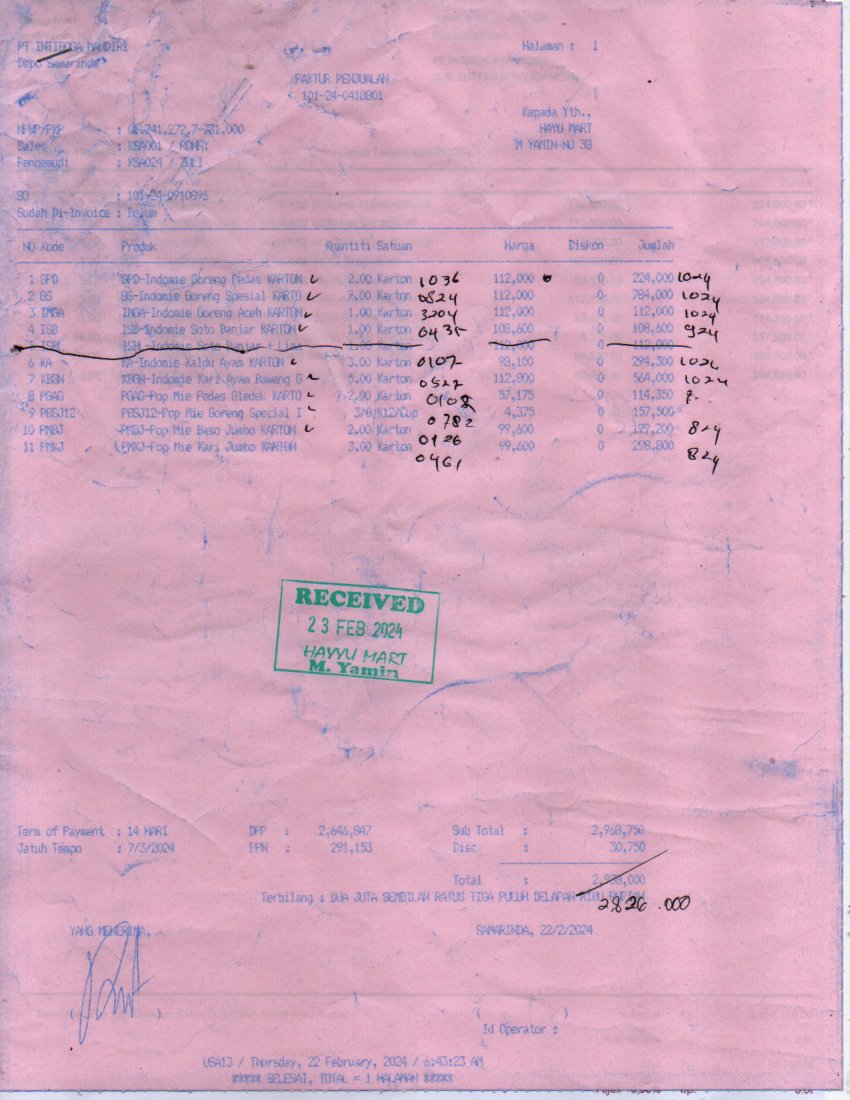 PT INTIBOGA MANDIRI
Depo Samarinda
Halaman : 1
FAKTUR PENJUALAN
101-24-0410801
Kepada Yth.,
HAYU MART
M YAMIN NO 30
NPWP/PKP :
Sales : KSA001 / RONRY
Pengemudi : KSA024 / ZULI
SO : 101-24-0910896
Sudah Di-Invoice : Belum
NO Kode Produk Kuantiti Satuan Harga Diskon Jumlah
1 GPD GPD-Indomie Goreng Pedas KARTON 2.00 Karton 1036 112,000 0 224,000 1024
2 GS GS-Indomie Goreng Spesial KARTO 7.00 Karton 0824 112,000 0 784,000 1024
3 IMGA IMGA-Indomie Goreng Aceh KARTON 1.00 Karton 3204 112,000 0 112,000 1024
4 ISB ISB-Indomie Soto Banjar KARTON 1.00 Karton 0435 108,600 0 108,600 924
5 ISBL ISBL-Indomie Soto Banjar Lima 1.00 Karton 112,000 0 112,000
6 KA KA-Indomie Kaldu Ayam KARTON 3.00 Karton 0107 98,100 0 294,300 1024
7 KBGN KBGN-Indomie Kari Ayam Bawang G 5.00 Karton 0522 112,800 0 564,000 1024
8 PGAG PGAG-Pop Mie Pedas Gledek KARTO 2.00 Karton 0108 57,175 0 114,350
9 PGSJ12 PGSJ12-Pop Mie Goreng Special I 3/0/K12/Cup 0782 4,375 0 157,500
10 PMBJ PMBJ-Pop Mie Baso Jumbo KARTON 2.00 Karton 0126 99,600 0 199,200 824
11 PMKJ PMKJ-Pop Mie Kari Jumbo KARTON 3.00 Karton 0461 99,600 0 298,800 824
RECEIVED
23 FEB 2024
HAYYU MART
M. Yamin
Term of Payment : 14 HARI DPP : 2,646,847 Sub Total : 2,968,750
Jatuh Tempo : 7/3/2024 PPN : 291,153 Disc : 30,750
Total : 2,938,000
Terbilang : DUA JUTA SEMBILAN RATUS TIGA PULUH DELAPAN RIBU RUPIAH
2826.000
YANG MENERIMA, SAMARINDA, 22/2/2024
( ) ( )
Id Operator :
USA13 / Thursday, 22 February, 2024 / 6:43:23 AM
***** SELESAI, TOTAL = 1 HALAMAN *****